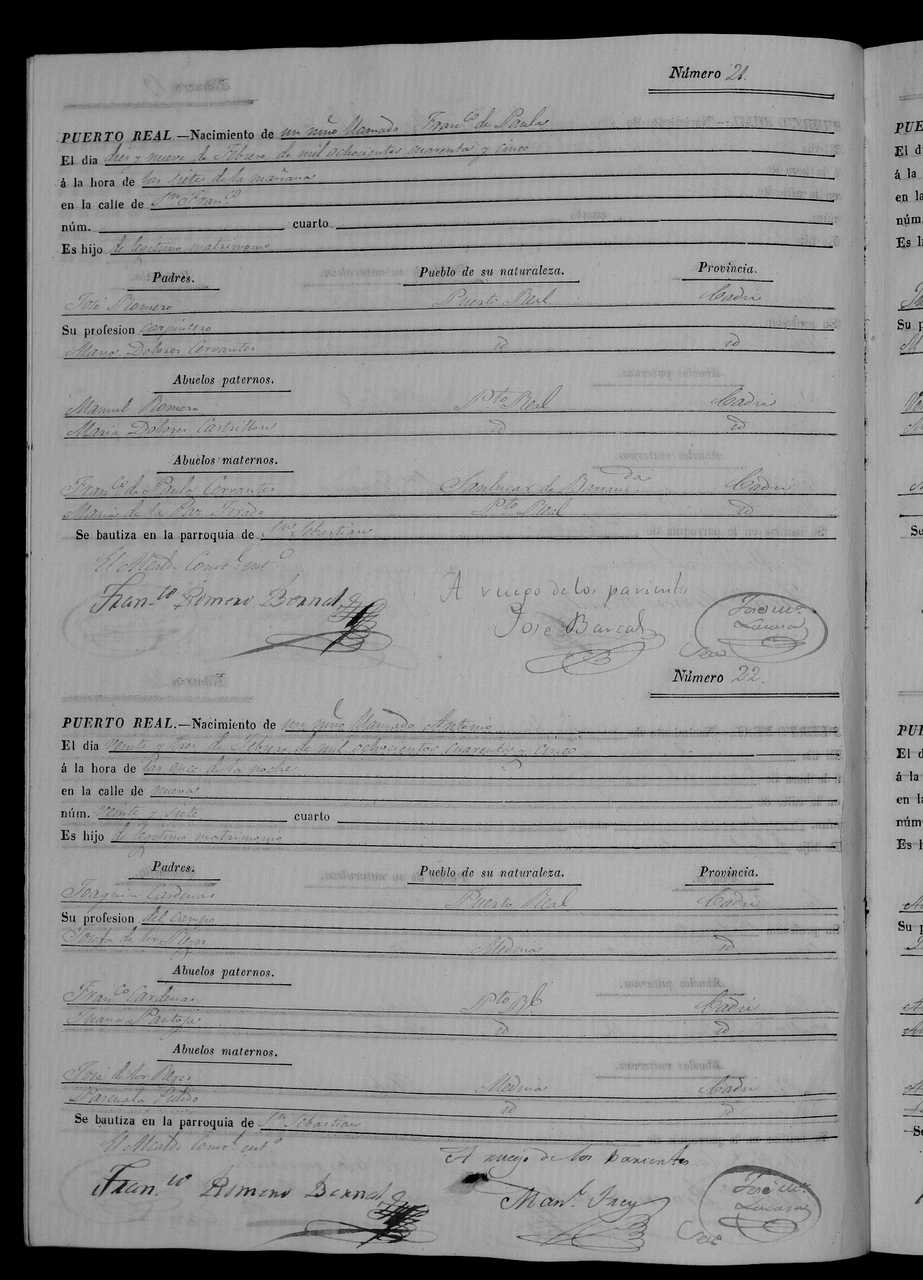 Número 21.
PUERTO REAL.—Nacimiento de un niño llamado Franco. de Paula
El dia diez y nueve de Febrero de mil ochocientos cuarenta y cinco
á la hora de las siete de la mañana
en la calle de Sn. Franco.
núm. cuarto
Es hijo de legitimo matrimonio
Padres. Pueblo de su naturaleza. Provincia.
José Romero Puerto Real Cadiz
Su profesion carpintero
Maria Dolores Cervantes id id
Abuelos paternos.
Manuel Romero Pto Real Cadiz
Maria Dolores Castrillon id id
Abuelos maternos.
Franco. de Paula Cervantes Sanlucar de Barrameda Cadiz
Maria de la Paz Pto Real id
Se bautiza en la parroquia de Sn. Sebastian
El Alcalde
Fran.co Romero Bernal A ruego de los parientes
José Barcal José Ma.
Srio
Número 22.
PUERTO REAL.—Nacimiento de un niño llamado Antonio
El dia veinte y tres de Febrero de mil ochocientos cuarenta y cinco
á la hora de las once de la noche
en la calle de nueva
núm. veinte y siete cuarto
Es hijo de legitimo matrimonio
Padres. Pueblo de su naturaleza. Provincia.
Joaquin Cardenas Puerto Real Cadiz
Su profesion del campo
Josefa de los Reyes Medina id
Abuelos paternos.
Franco Cardenas Pto Rl Cadiz
Juana Pantoja id id
Abuelos maternos.
José de los Reyes Medina Cadiz
id id
Se bautiza en la parroquia de Sn. Sebastian
El Alcalde
A ruego de los parientes
Fran.co Romero Bernal Manl. José Ma.
Srio